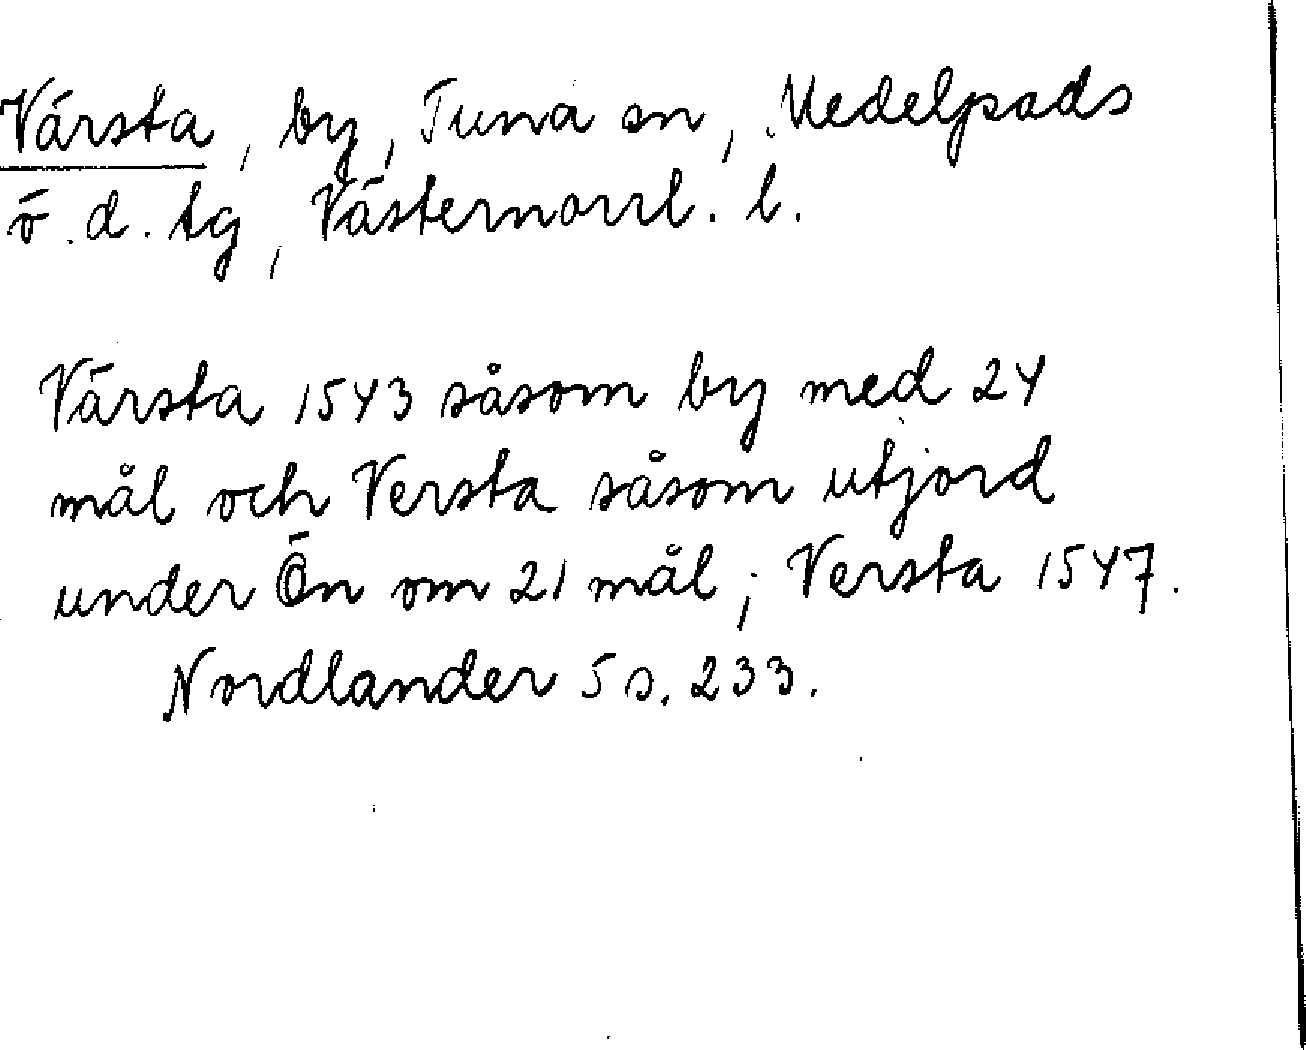 Värsta, by, Tuna sn, Medelpads
ö. d. tg, Västernorrl. l.
Värsta 1543 såsom by med 24
mål och Versta såsom utjord
under Ön om 21 mål; Versta 1547.
Nordlander 5 s. 233.